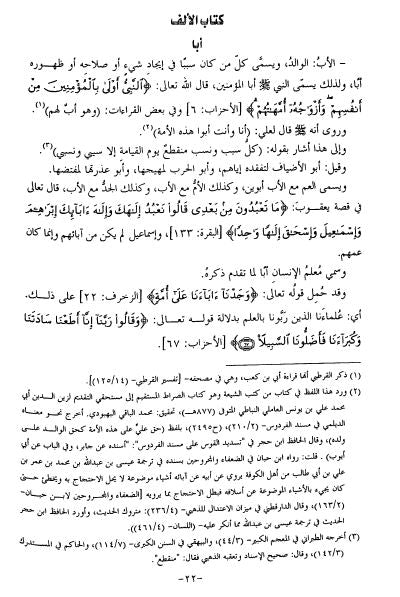 كتاب الألف
أبا
- الأبُ: الوالدُ، ويسمَّى كلّ من كان سببًا في إيجادِ شيءٍ أو صلاحه أو ظهوره
أبًا، ولذلك يسمَّى النبي ﷺ أبا المؤمنين، قال الله تعالى: ﴿ٱلنَّبِيُّ أَوْلَىٰ بِٱلْمُؤْمِنِينَ مِنْ
أَنفُسِهِمْ وَأَزْوَٰجُهُۥٓ أُمَّهَٰتُهُمْ﴾ [الأحزاب: ٦] وفي بعض القراءات: (وهو أبٌ لهم)(١).
وروى أنه ﷺ قال لعلي: (أنا وأنت أبوا هذه الأمة)(٢).
وإلى هذا أشار بقوله: (كلُّ سبب ونسب منقطعٌ يوم القيامة إلا سببي ونسبي)(٣).
وقيل: أبو الأضياف لتفقده إياهم، وأبو الحرب لمهيجها، وأبو عذرتها لمفتضها.
ويسمى العم مع الأب أبوين، وكذلك الأمُّ مع الأب، وكذلك الجدُّ مع الأب، قال تعالى
في قصة يعقوبَ: ﴿مَا تَعْبُدُونَ مِنۢ بَعْدِى قَالُوا۟ نَعْبُدُ إِلَٰهَكَ وَإِلَٰهَ ءَابَآئِكَ إِبْرَٰهِـۧمَ
وَإِسْمَٰعِيلَ وَإِسْحَٰقَ إِلَٰهًا وَٰحِدًا﴾ [البقرة: ١٣٣]، وإسماعيل لم يكن من آبائهم وإنما كان
عمهم.
وسمي مُعلمُ الإنسانِ أبًا لما تقدم ذكرهُ.
وقد حُمِل قولُه تعالى: ﴿وَجَدْنَآ ءَابَآءَنَا عَلَىٰٓ أُمَّةٍ﴾ [الزخرف: ٢٢] على ذلك.
أي: عُلماءَنا الذين ربَّونا بالعلمِ بدلالة قولـه تعالى: ﴿وَقَالُوا۟ رَبَّنَآ إِنَّآ أَطَعْنَا سَادَتَنَا
وَكُبَرَآءَنَا فَأَضَلُّونَا ٱلسَّبِيلَا۠ ٦٧﴾ [الأحزاب: ٦٧].
(١) ذكر القرطبي أنها قراءة أبي بن كعب، وهي في مصحفه- [تفسير القرطبي- (١٢٥/١٤)].
(٢) ورد هذا اللفظ في كتاب من كتب الشيعة وهو كتاب الصراط المستقيم إلى مستحقي التقديم لزين الدين أبي
محمد علي بن يونس العاملي النباطي المتوفى (٨٧٧هـ)، تحقيق: محمد الباقي البهبودي. أخرج نحو معناه
الديلمي في مسند الفردوس- (٢١٠/٢) (ح٢٤٩٥)، بلفظ (حق عليّ على هذه الأمة كحق الوالد على
ولده)، وقال الحافظ ابن حجر في "تسديد القوس على مسند الفردوس": "أسنده عن جابر، وفي الباب عن أبي
أيوب). قلت: رواه ابن حبان في الضعفاء والمجروحين بسنده في ترجمة عيسى بن عبدالله بن محمد بن عمر بن
علي بن أبي طالب من أهل الكوفة يروي عن أبيه عن آبائه أشياء موضوعة لا يحل الاحتجاج به ويخطئ حتى
كان يجيء بالأشياء الموضوعة عن أسلافه فبطل الاحتجاج بما يرويه [الضعفاء والمجروحين لابن حبان-
(١٦٣/٢)، وقال الدارقطني في ميزان الاعتدال للذهبي- (٢٣٦/٤): متروك الحديث، وأورد الحافظ ابن حجر
الحديث في ترجمة عيسى بن عبدالله مما أنكر عليه- (اللسان- (٤٦١/٤)).
(٣) أخرجه الطبراني في المعجم الكبير- (٤٤/٣)، والبيهقي في السنن الكبرى- (١١٤/٧)، والحاكم في المستدرك
(١٤٢/٣)، وقال: صحيح الإسناد وتعقبه الذهبي فقال: "منقطع".
-٢٢-